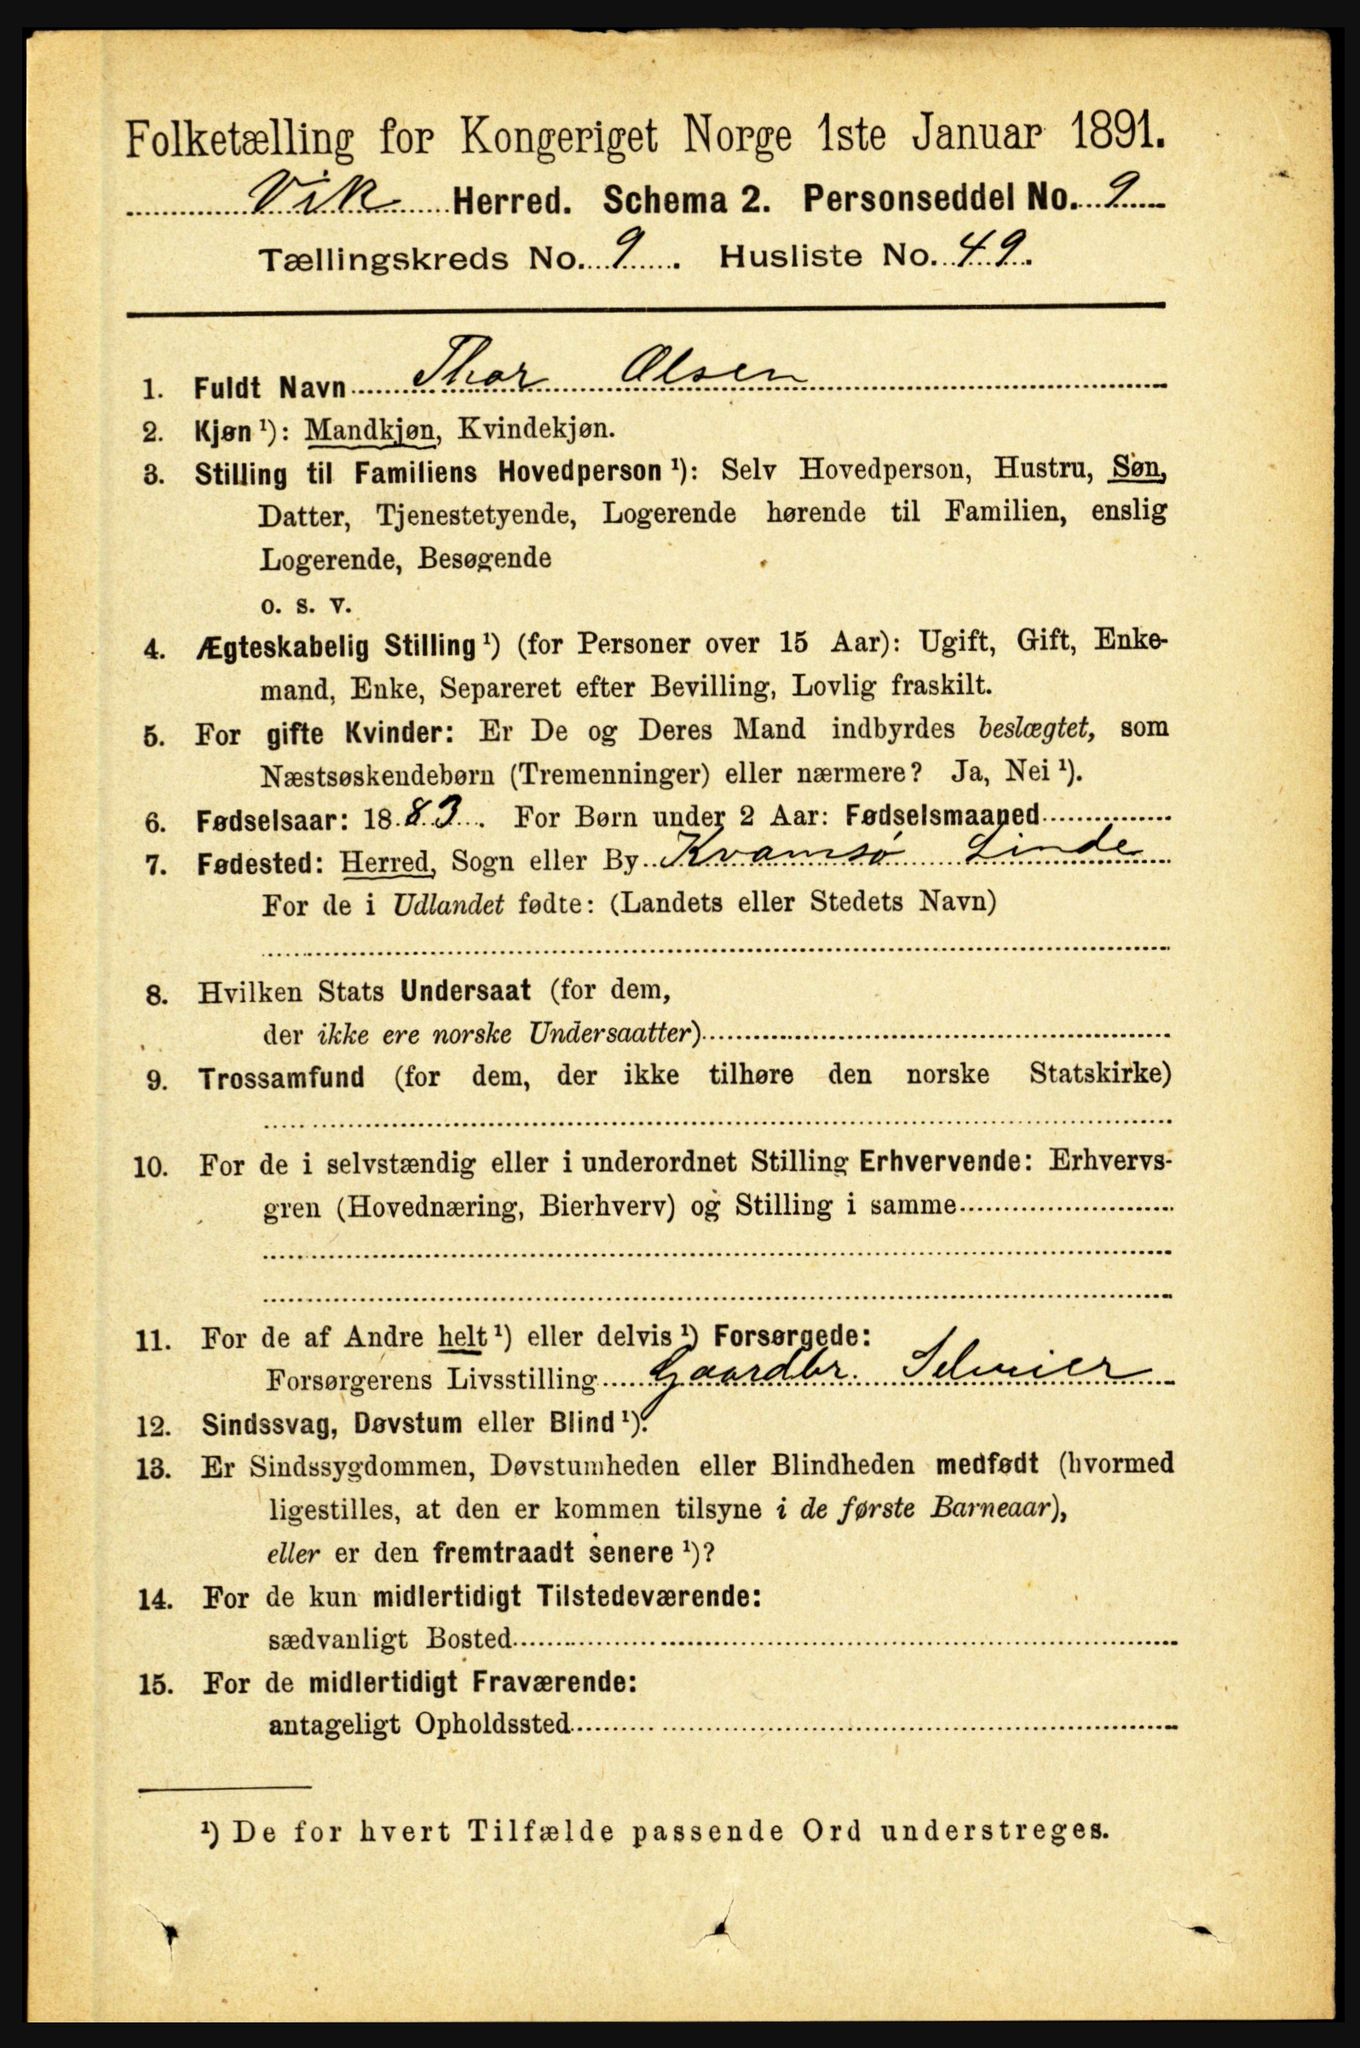 Folketælling for Kongeriget Norge 1ste Januar 1891.
Vik Herred. Schema 2. Personseddel No. 9
Tællingskreds No. 9. Husliste No. 49.
1. Fuldt Navn Thor Olsen
2. Kjøn¹): Mandkjøn, Kvindekjøn.
3. Stilling til Familiens Hovedperson¹): Selv Hovedperson, Hustru, Søn,
Datter, Tjenestetyende, Logerende hørende til Familien, enslig
Logerende, Besøgende
o. s. v.
4. Ægteskabelig Stilling¹) (for Personer over 15 Aar): Ugift, Gift, Enke-
mand, Enke, Separeret efter Bevilling, Lovlig fraskilt.
5. For gifte Kvinder: Er De og Deres Mand indbyrdes beslægtet, som
Næstsøskendebørn (Tremenninger) eller nærmere? Ja, Nei¹).
6. Fødselsaar: 1883. For Børn under 2 Aar: Fødselsmaaned
7. Fødested: Herred, Sogn eller By Kvamsø Linde
For de i Udlandet fødte: (Landets eller Stedets Navn)
8. Hvilken Stats Undersaat (for dem,
der ikke ere norske Undersaatter)
9. Trossamfund (for dem, der ikke tilhøre den norske Statskirke)
10. For de i selvstændig eller i underordnet Stilling Erhvervende: Erhvervs-
gren (Hovednæring, Bierhverv) og Stilling i samme
11. For de af Andre helt¹) eller delvis¹) Forsørgede:
Forsørgerens Livsstilling Gaardbr. Selveier
12. Sindssvag, Døvstum eller Blind¹).
13. Er Sindssygdommen, Døvstumheden eller Blindheden medfødt (hvormed
ligestilles, at den er kommen tilsyne i de første Barneaar),
eller er den fremtraadt senere¹)?
14. For de kun midlertidigt Tilstedeværende:
sædvanligt Bosted
15. For de midlertidigt Fraværende:
antageligt Opholdssted
¹) De for hvert Tilfælde passende Ord understreges.